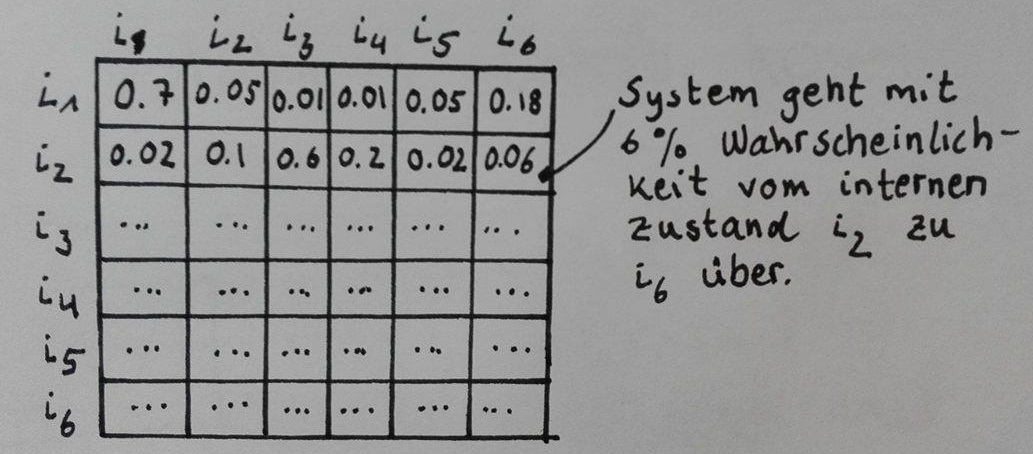 i1 i2 i3 i4 i5 i6
i1 0.7 0.05 0.01 0.01 0.05 0.18
i2 0.02 0.1 0.6 0.2 0.02 0.06
i3 ... ... ... ... ... ...
i4 ... ... ... ... ... ...
i5 ... ... ... ... ... ...
i6 ... ... ... ... ... ...
System geht mit
6% Wahrscheinlich-
keit vom internen
Zustand i2 zu
i6 über.